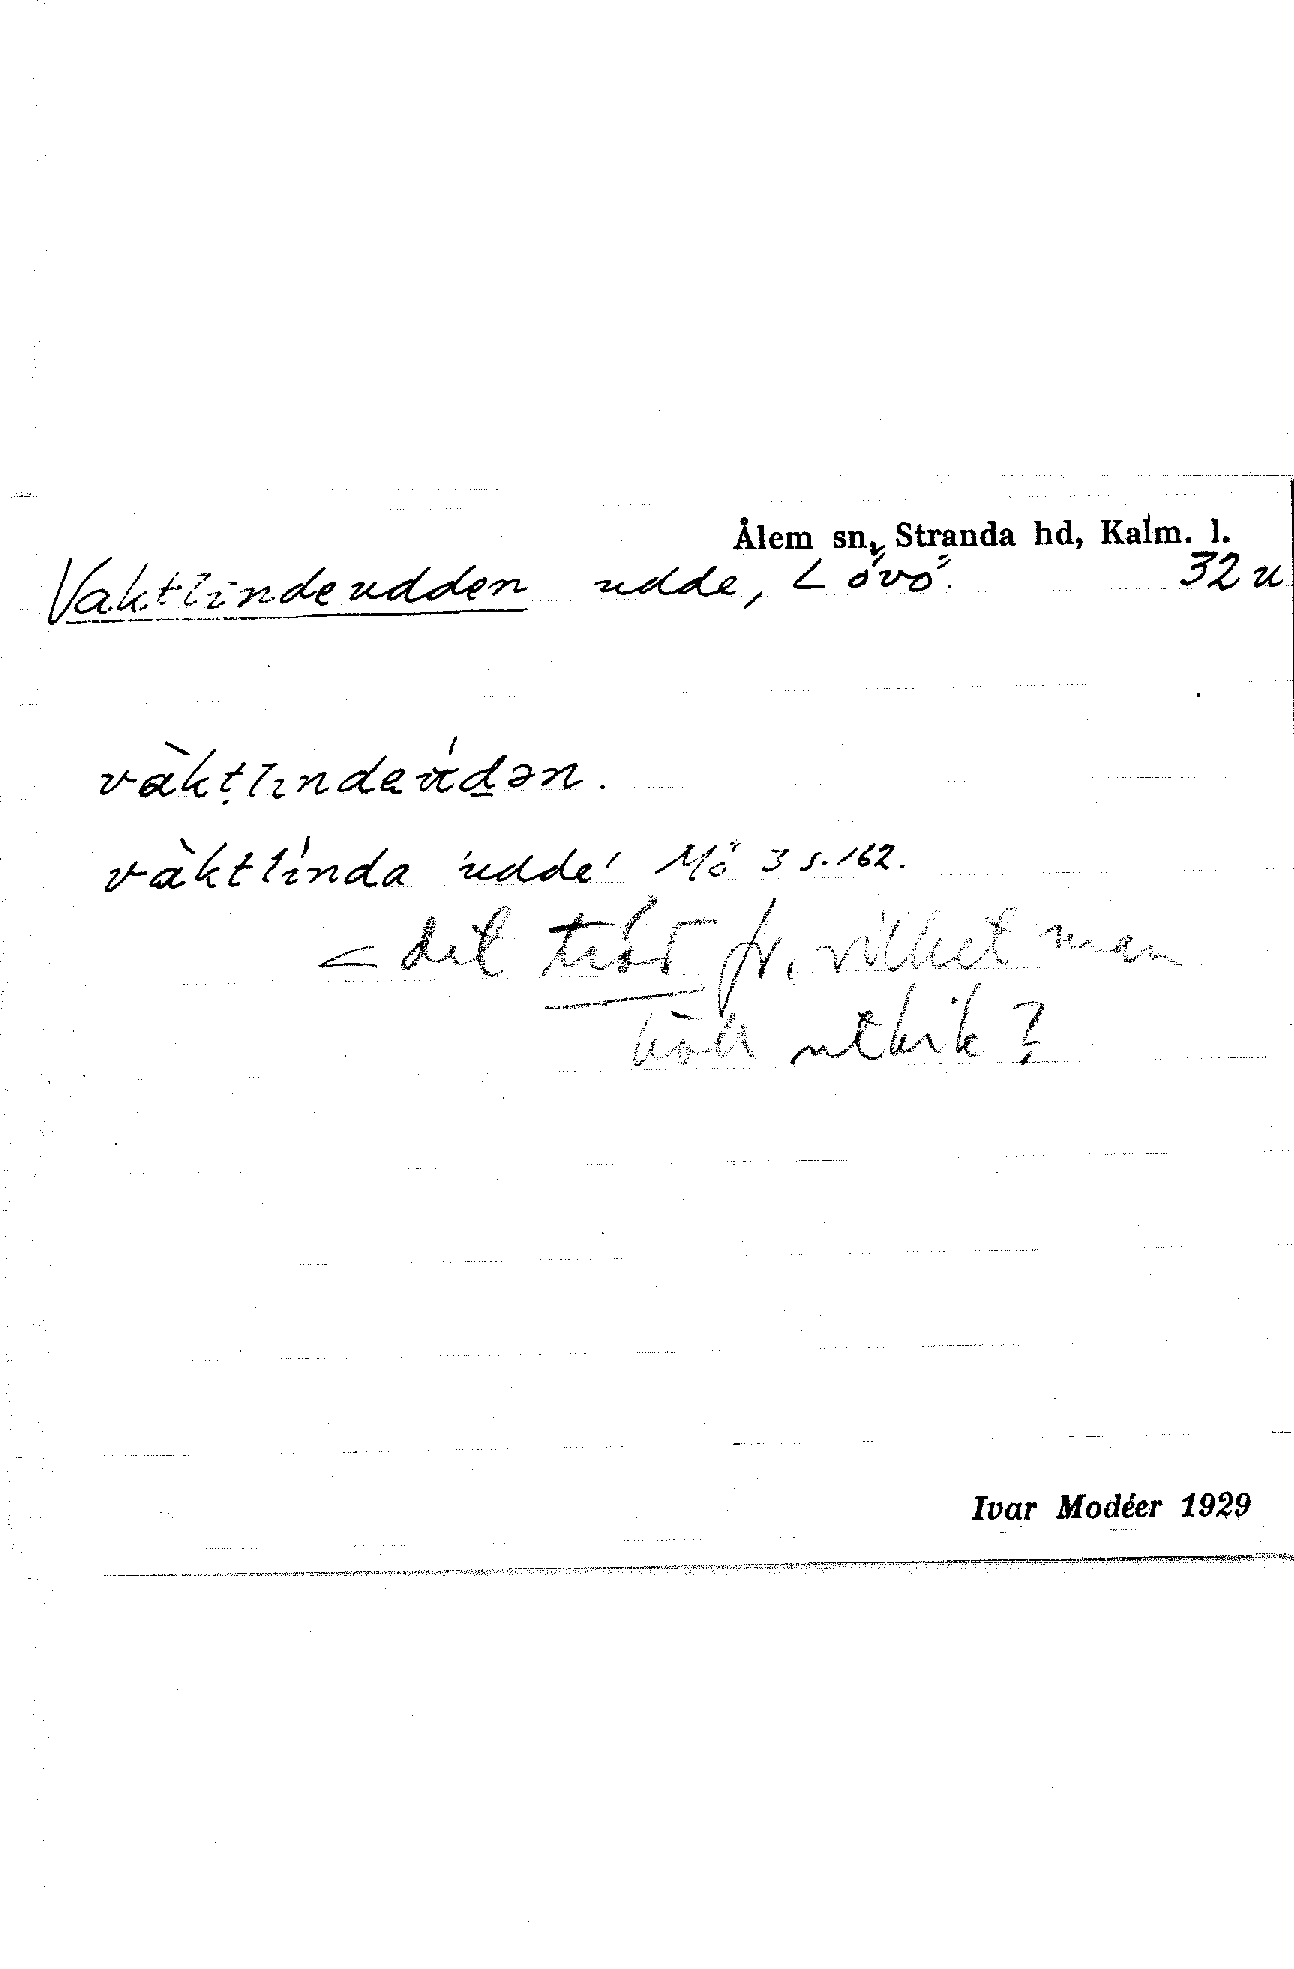 Ålem sn, Stranda hd, Kalm. l.
Vaktlindeudden udde, Lövö. 32 u
vàktlındeúdən.
vàktlínda 'udde' Mö 3 s. 162.
< det träd fr. vilket man
höll utkik?
Ivar Modéer 1929